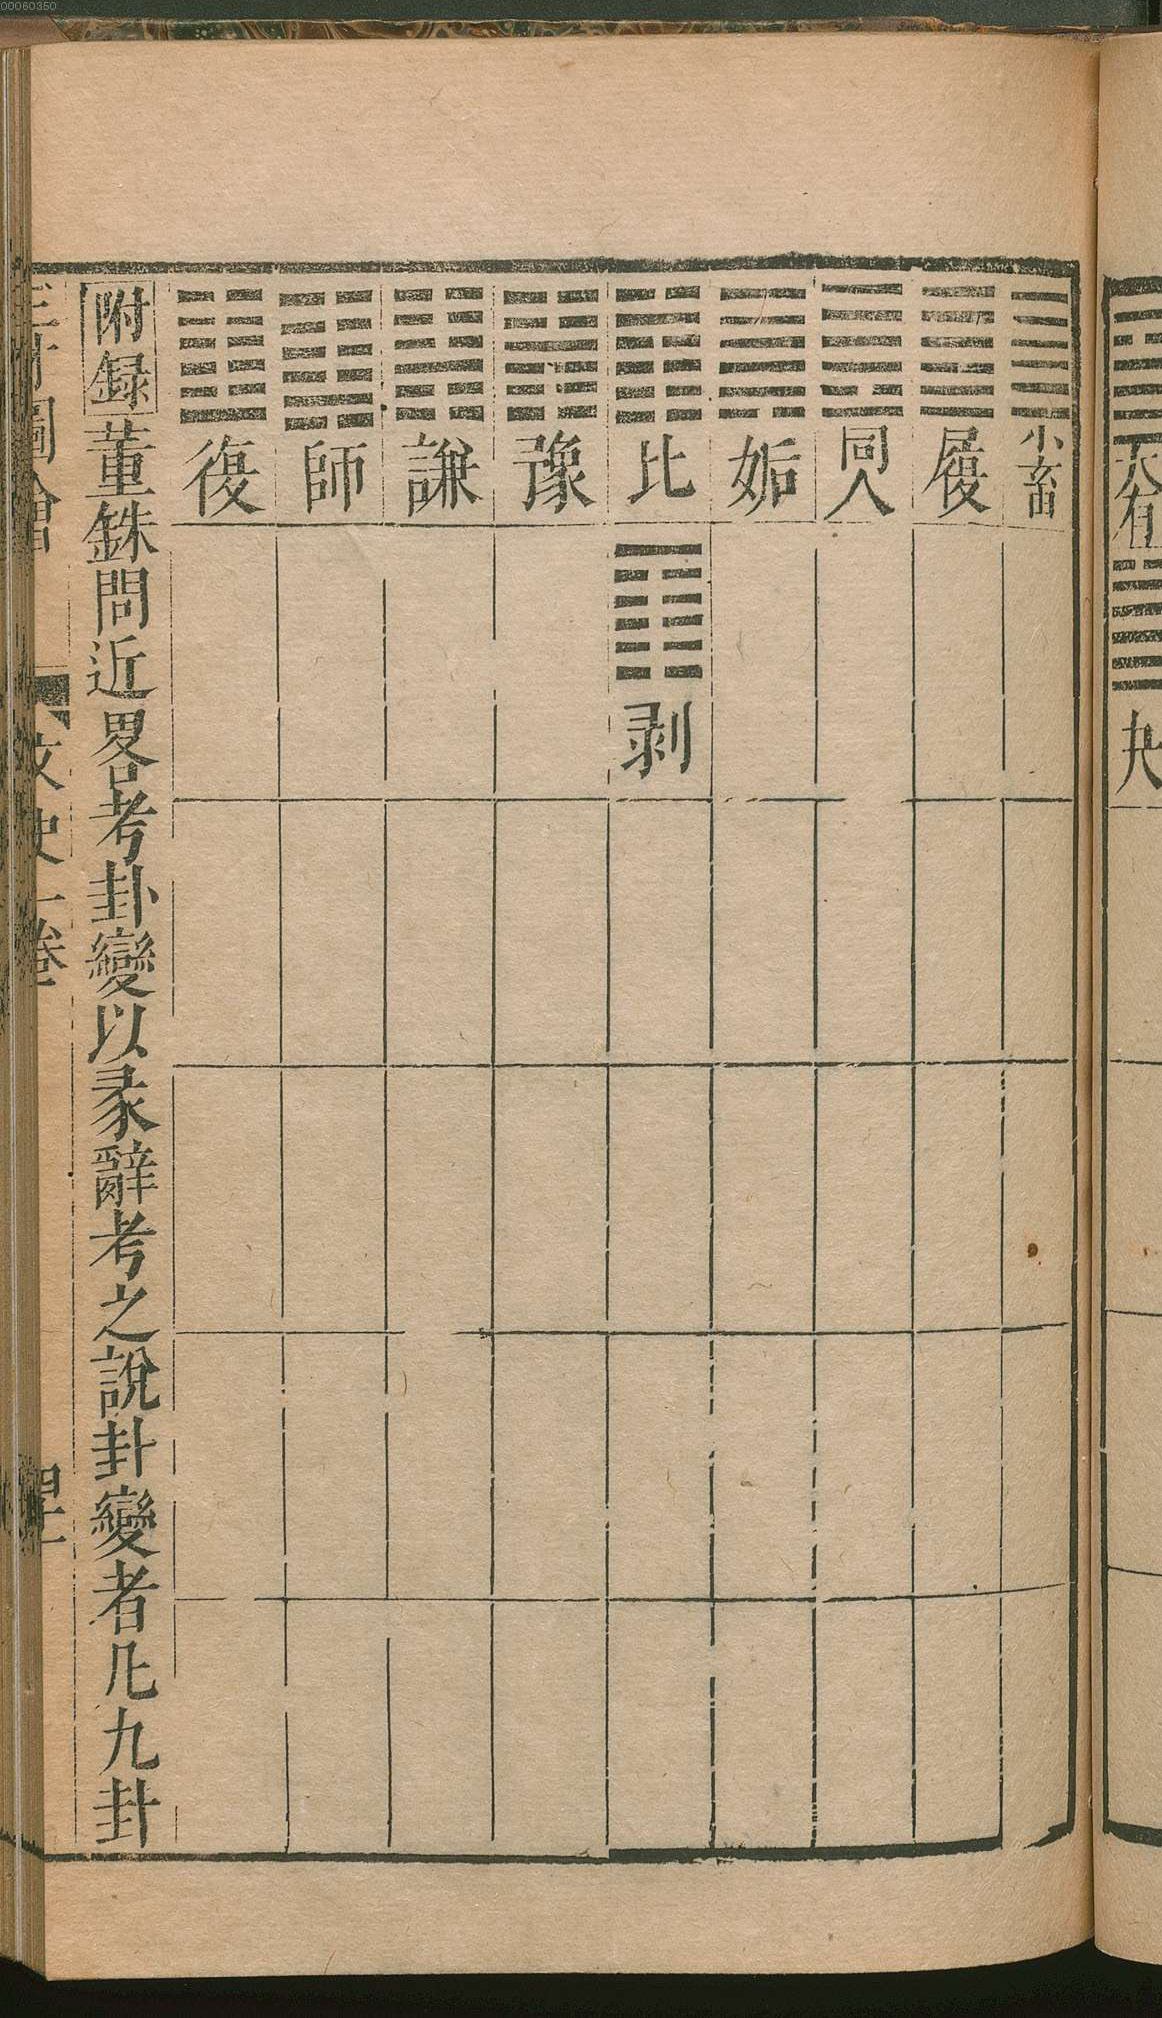 00060350
大有
夬
小畜
履
同人
姤
比
剥
豫
謙
師
復
附録董銖問近畧考卦變以彖辭考之說卦變者凡九卦
三才圖會 文史一卷